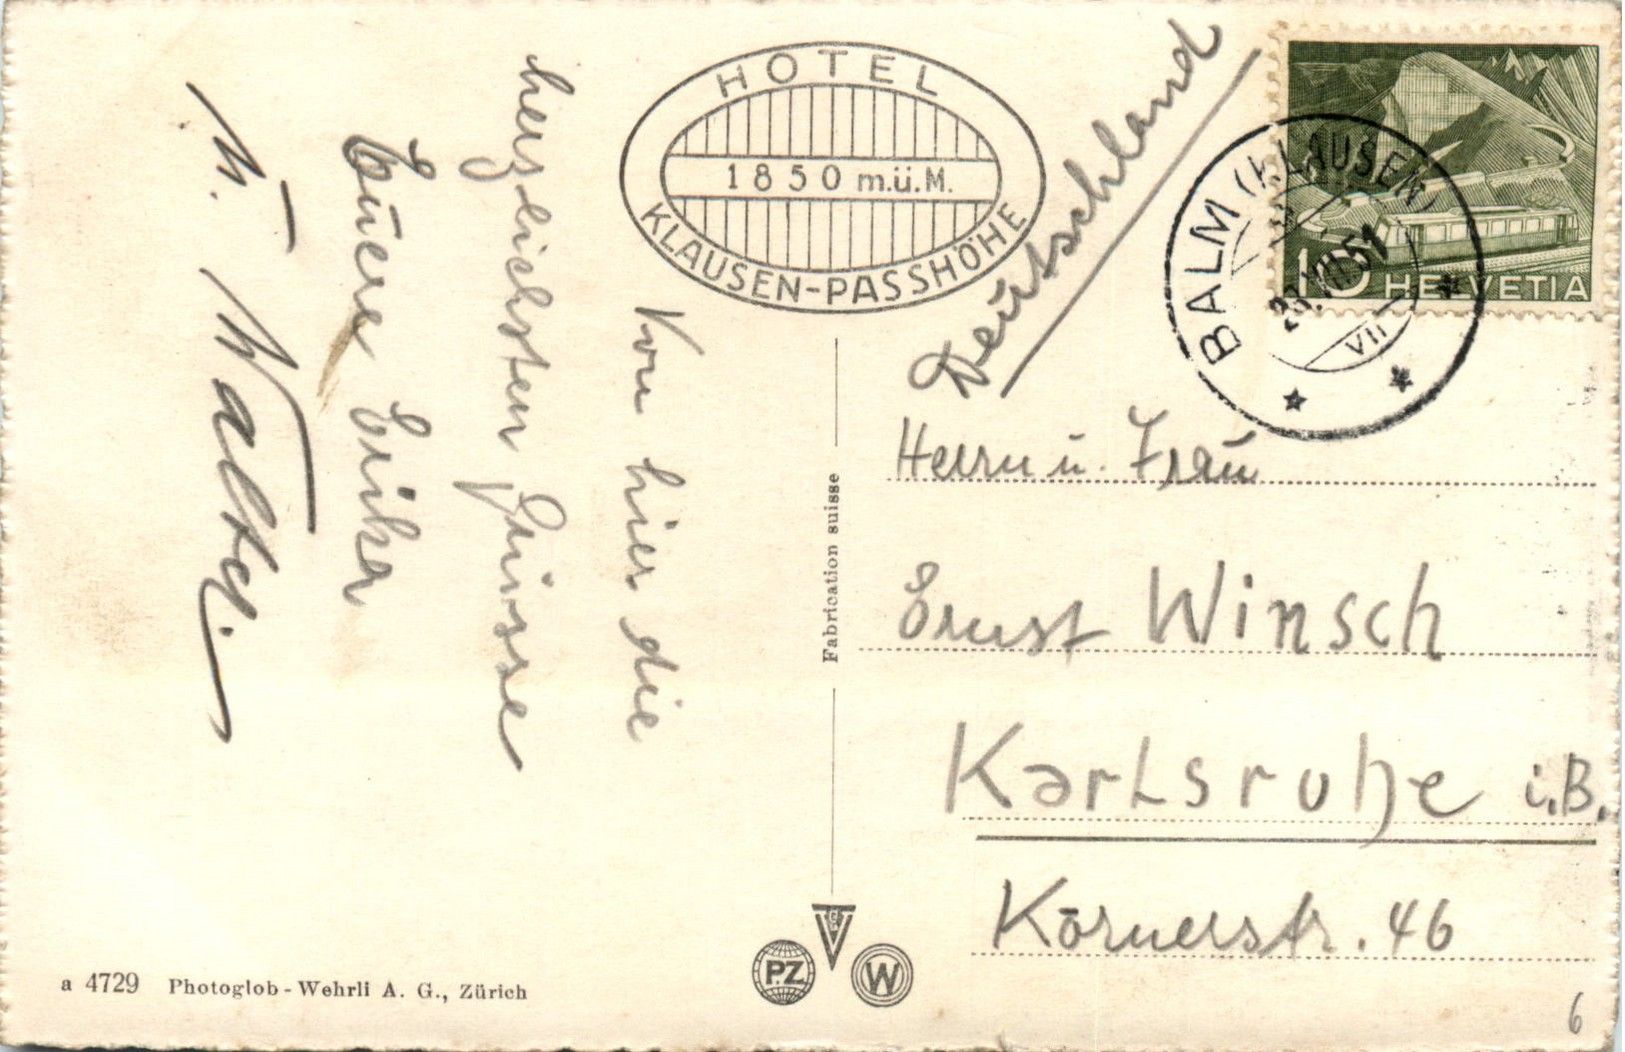 Von hier die
herzlichsten Grüsse
Euere Erika
u. Walter.
HOTEL
1850 m.ü.M.
KLAUSEN-PASSHÖHE
Deutschland
10 HELVETIA
BALM (KLAUSEN)
VIII 51
VII
Herrn u. Frau
Ernst Winsch
Karlsruhe i.B.
Körnerstr. 46
Fabrication suisse
a 4729 Photoglob-Wehrli A. G., Zürich
P.Z
W
6